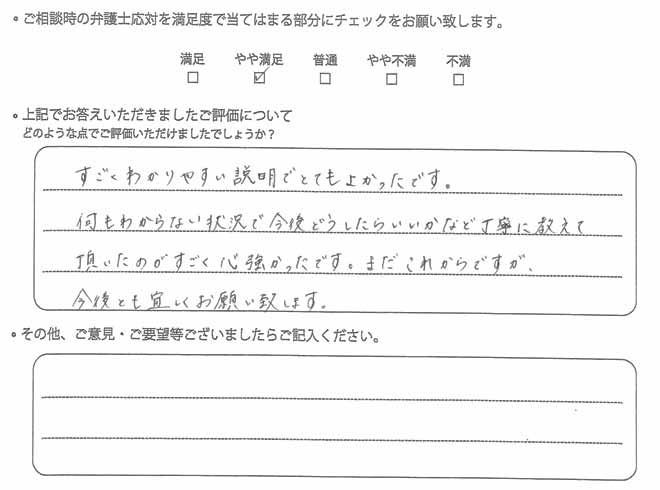 • ご相談時の弁護士応対を満足度で当てはまる部分にチェックをお願い致します。
満足 やや満足 普通 やや不満 不満
□ ☑ □ □ □
• 上記でお答えいただきましたご評価について
どのような点でご評価いただけましたでしょうか?
すごくわかりやすい説明でとてもよかったです。
何もわからない状況で今後どうしたらいいかなど丁寧に教えて
頂いたのがすごく心強かったです。まだこれからですが、
今後とも宜しくお願い致します。
• その他、ご意見・ご要望等ございましたらご記入ください。